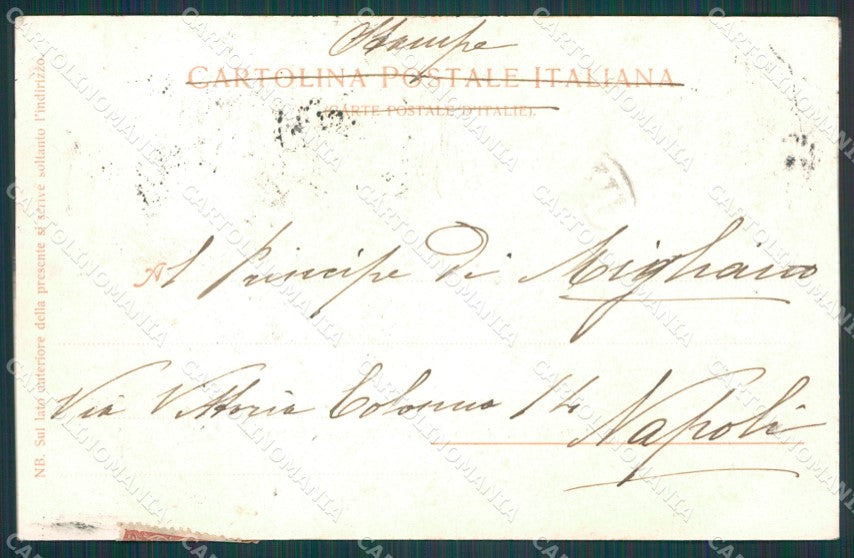 Stampe
CARTOLINA POSTALE ITALIANA
(CARTE POSTALE D'ITALIE).
Al Principe di Migliano
Via Vittoria Colonna 14
Napoli
NB. Sul lato anteriore della presente si scrive soltanto l'indirizzo.
CARTOLINOMANIA